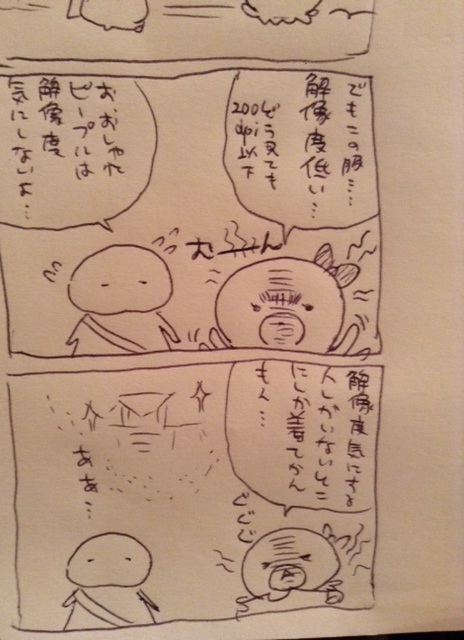 でもこの豚…
解像度低い…
どう見ても
200dpi以下
お、おしゃれ
ピープルは
解像度
気にしないよ…
むーん
解像度気にする
人しかいないとこ
にしか着てかん
もん…
ぐじじ
ああ…